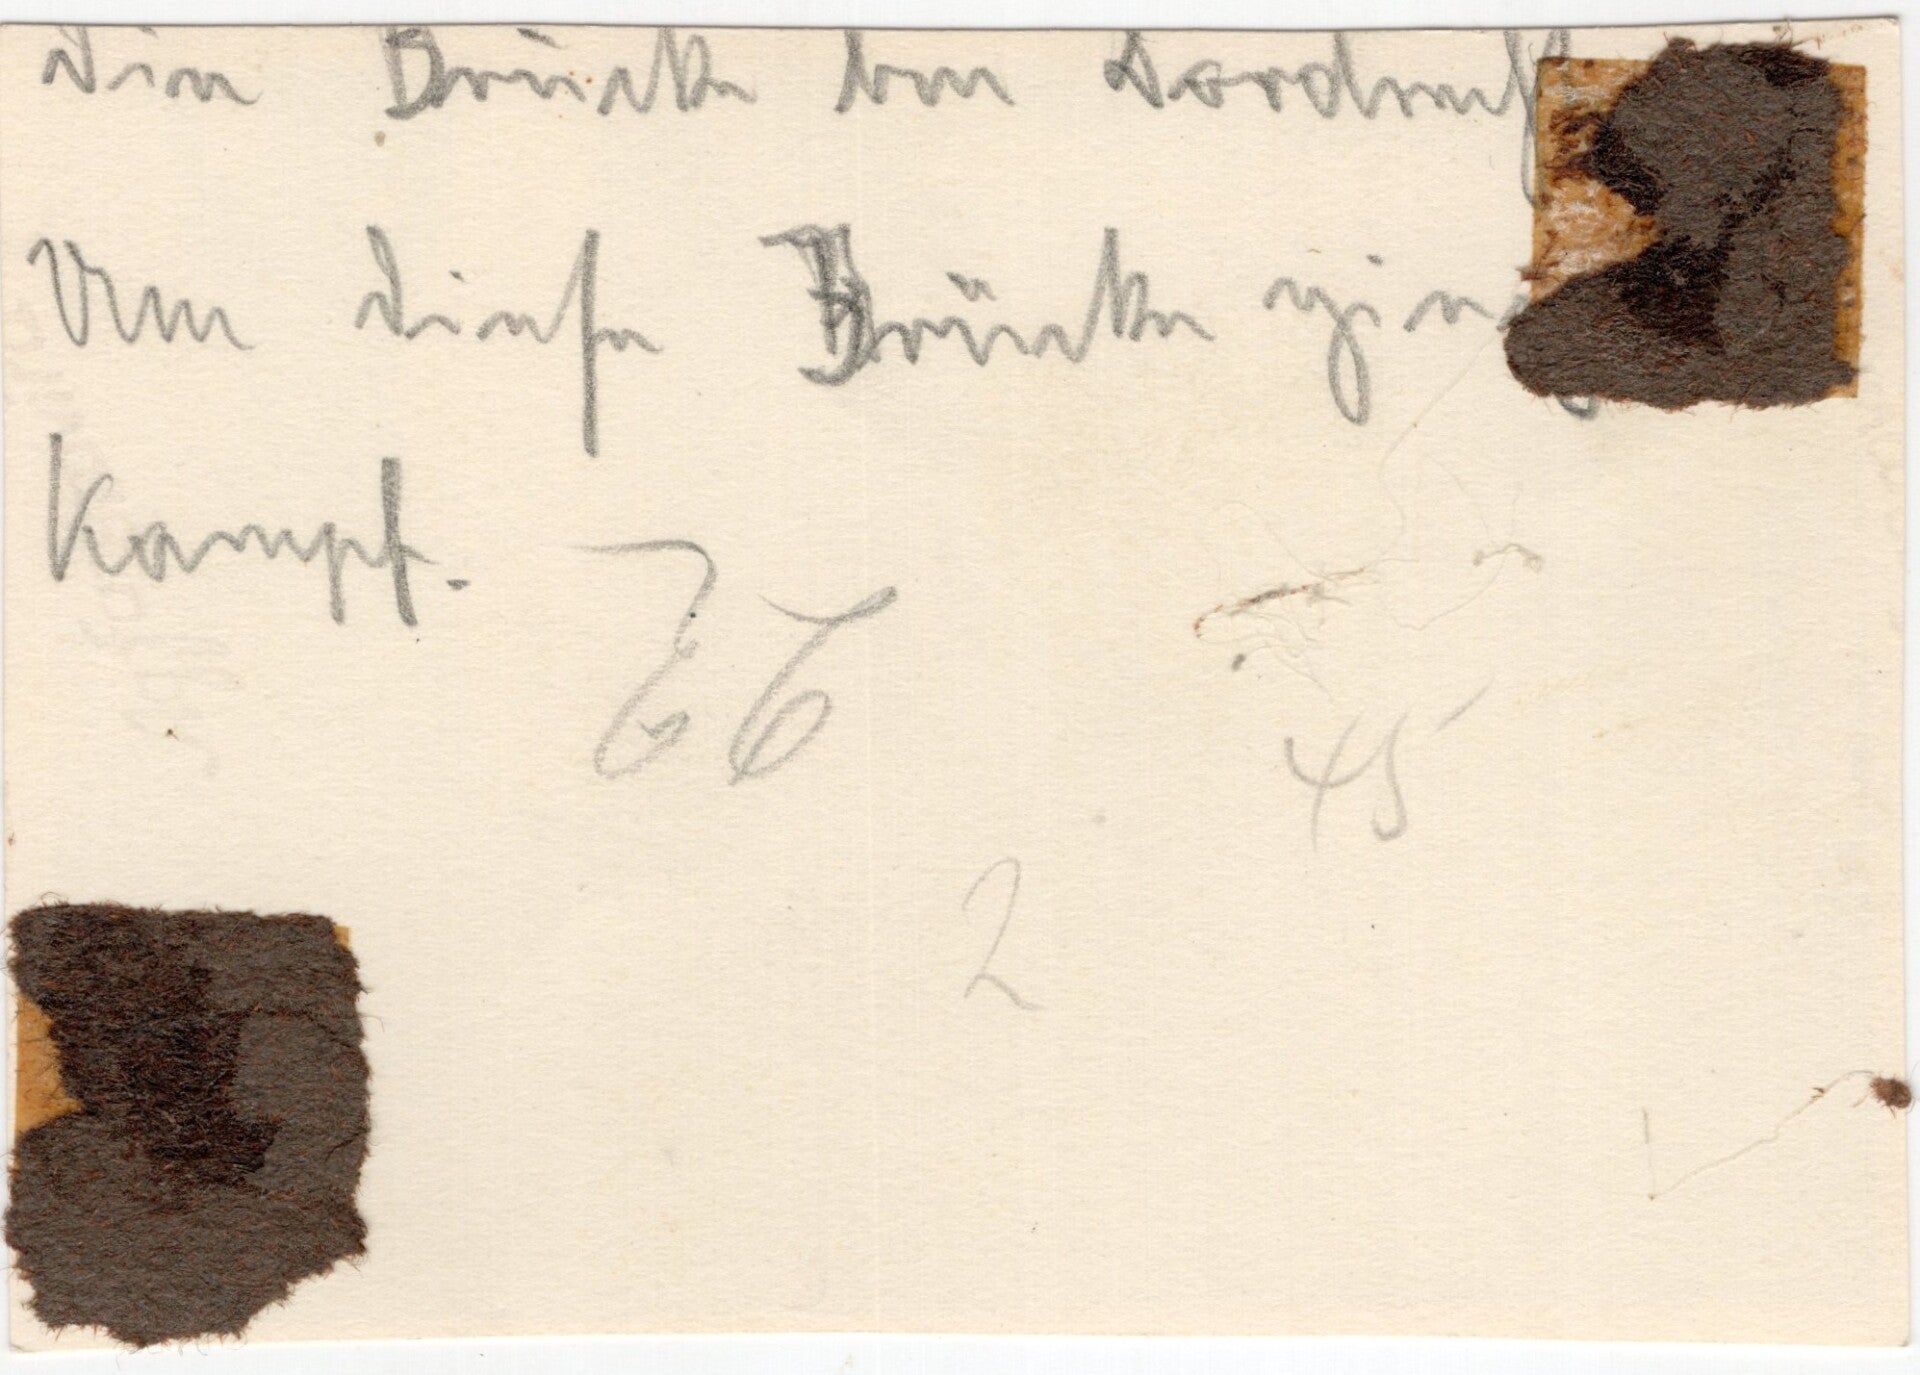 Die Brücke von Dordrech
Um diese Brücke ging
Kampf.
45
2